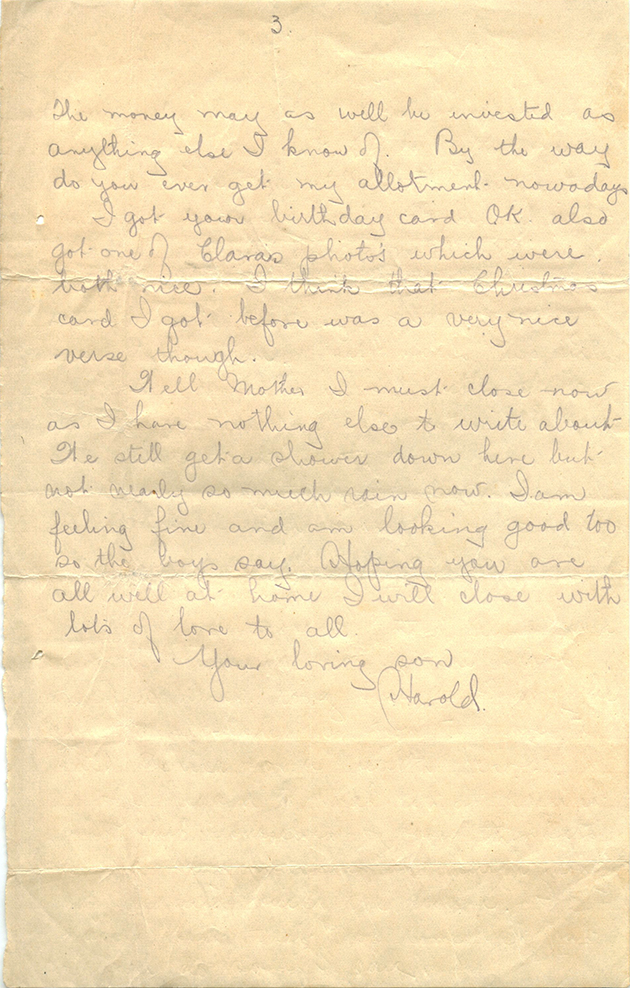 3.
The money may as well be invested as
anything else I know of. By the way
do you ever get my allotment nowadays
I got your birthday card OK. also
got one of Claras photo's which were.
both nice. I think that Christmas
card I got before was a very nice
verse though.
Well Mother I must close now
as I have nothing else to write about
We still get a shower down here but
not nearly so much rain now. I am
feeling fine and am looking good too
so the boys say. Hoping you are
all well at home I will close with
lots of love to all.
Your loving son
Harold.